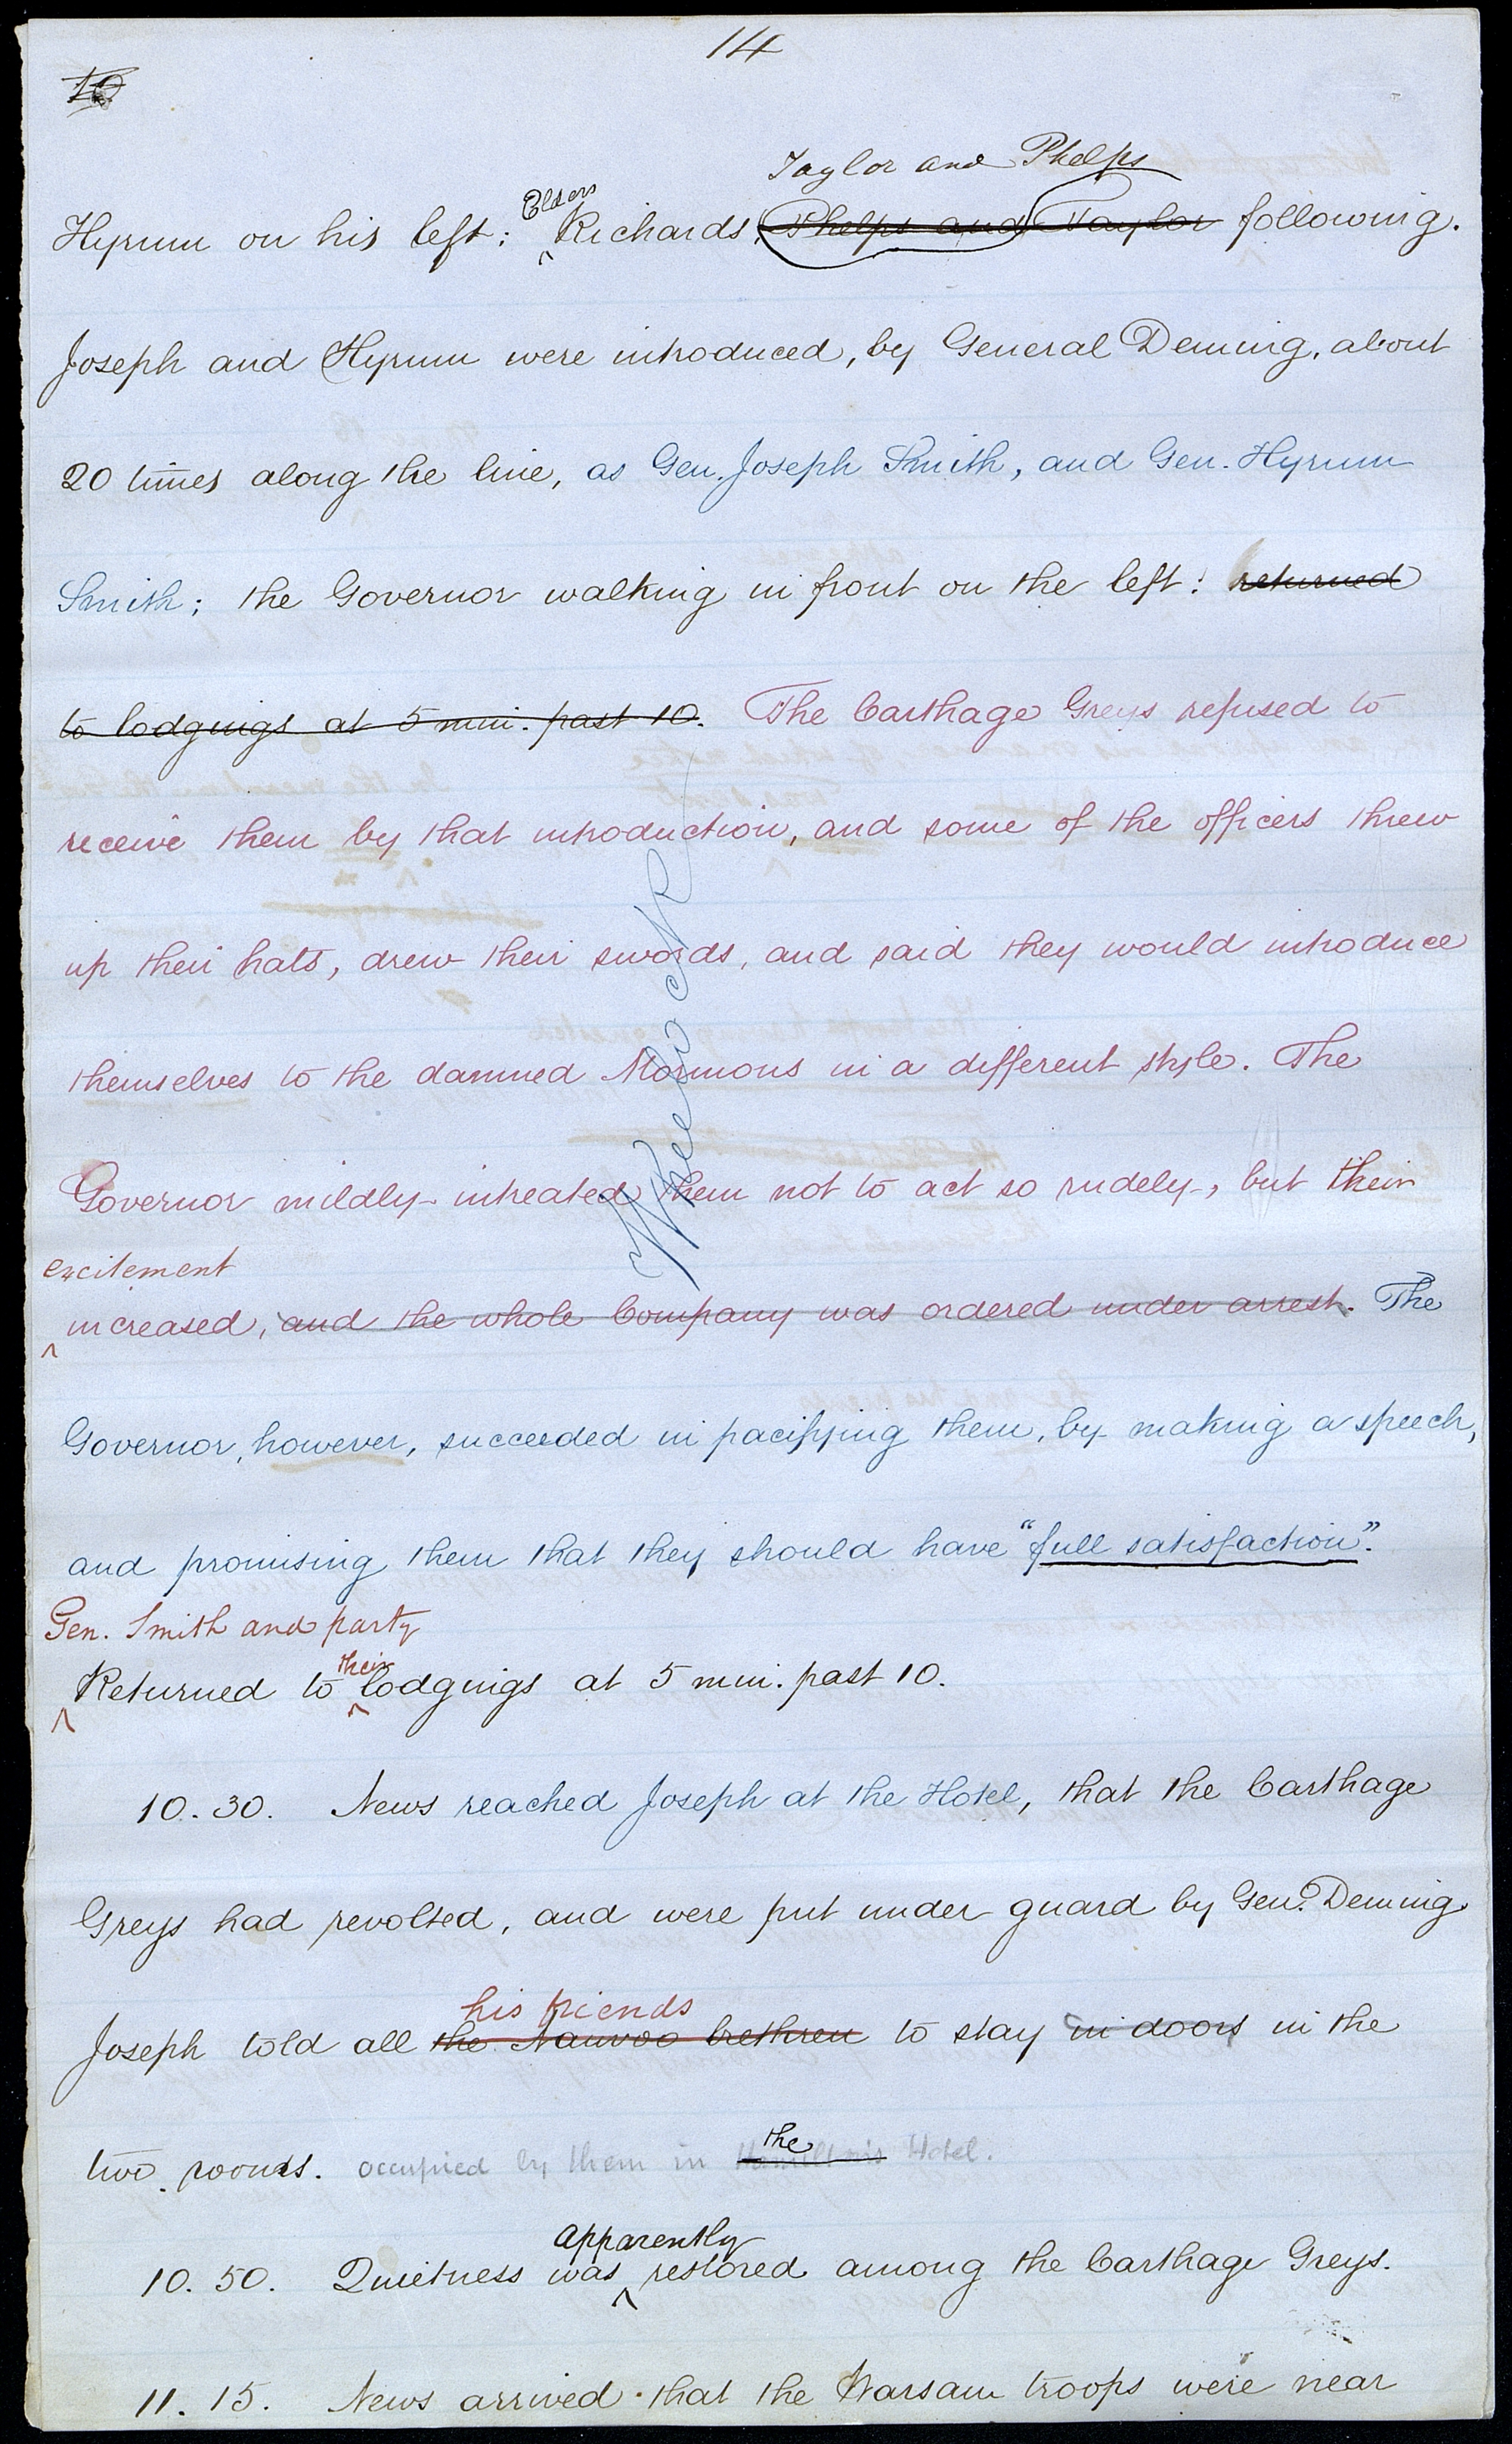 14
10
Taylor and Phelps
Hyrum on his left; Elders Richards, Phelps and Taylor following.
Joseph and Hyrum were introduced, by General Deming, about
20 times along the line, as Gen. Joseph Smith, and Gen. Hyrum
Smith; the Governor walking in front on the left: returned
to lodgings at 5 min. past 10. The Carthage Greys refused to
receive them by that introduction, and some of the officers threw
up their hats, drew their swords, and said they would introduce
themselves to the damned Mormons in a different style. The
Governor mildly intreated them not to act so rudely, but their
excitement
increased, and the whole Company was ordered under arrest. The
Governor, however, succeeded in pacifying them, by making a speech,
and promising them that they should have "full satisfaction".
Gen. Smith and party
Returned to their lodgings at 5 min. past 10.
10.30. News reached Joseph at the Hotel, that the Carthage
Greys had revolted, and were put under guard by Gen. Deming.
his friends
Joseph told all the Nauvoo brethren to stay in doors in the
the
two rooms. occupied by them in Hamilton's Hotel.
apparently
10.50. Quietness was restored among the Carthage Greys.
11.15. News arrived that the Warsaw troops were near